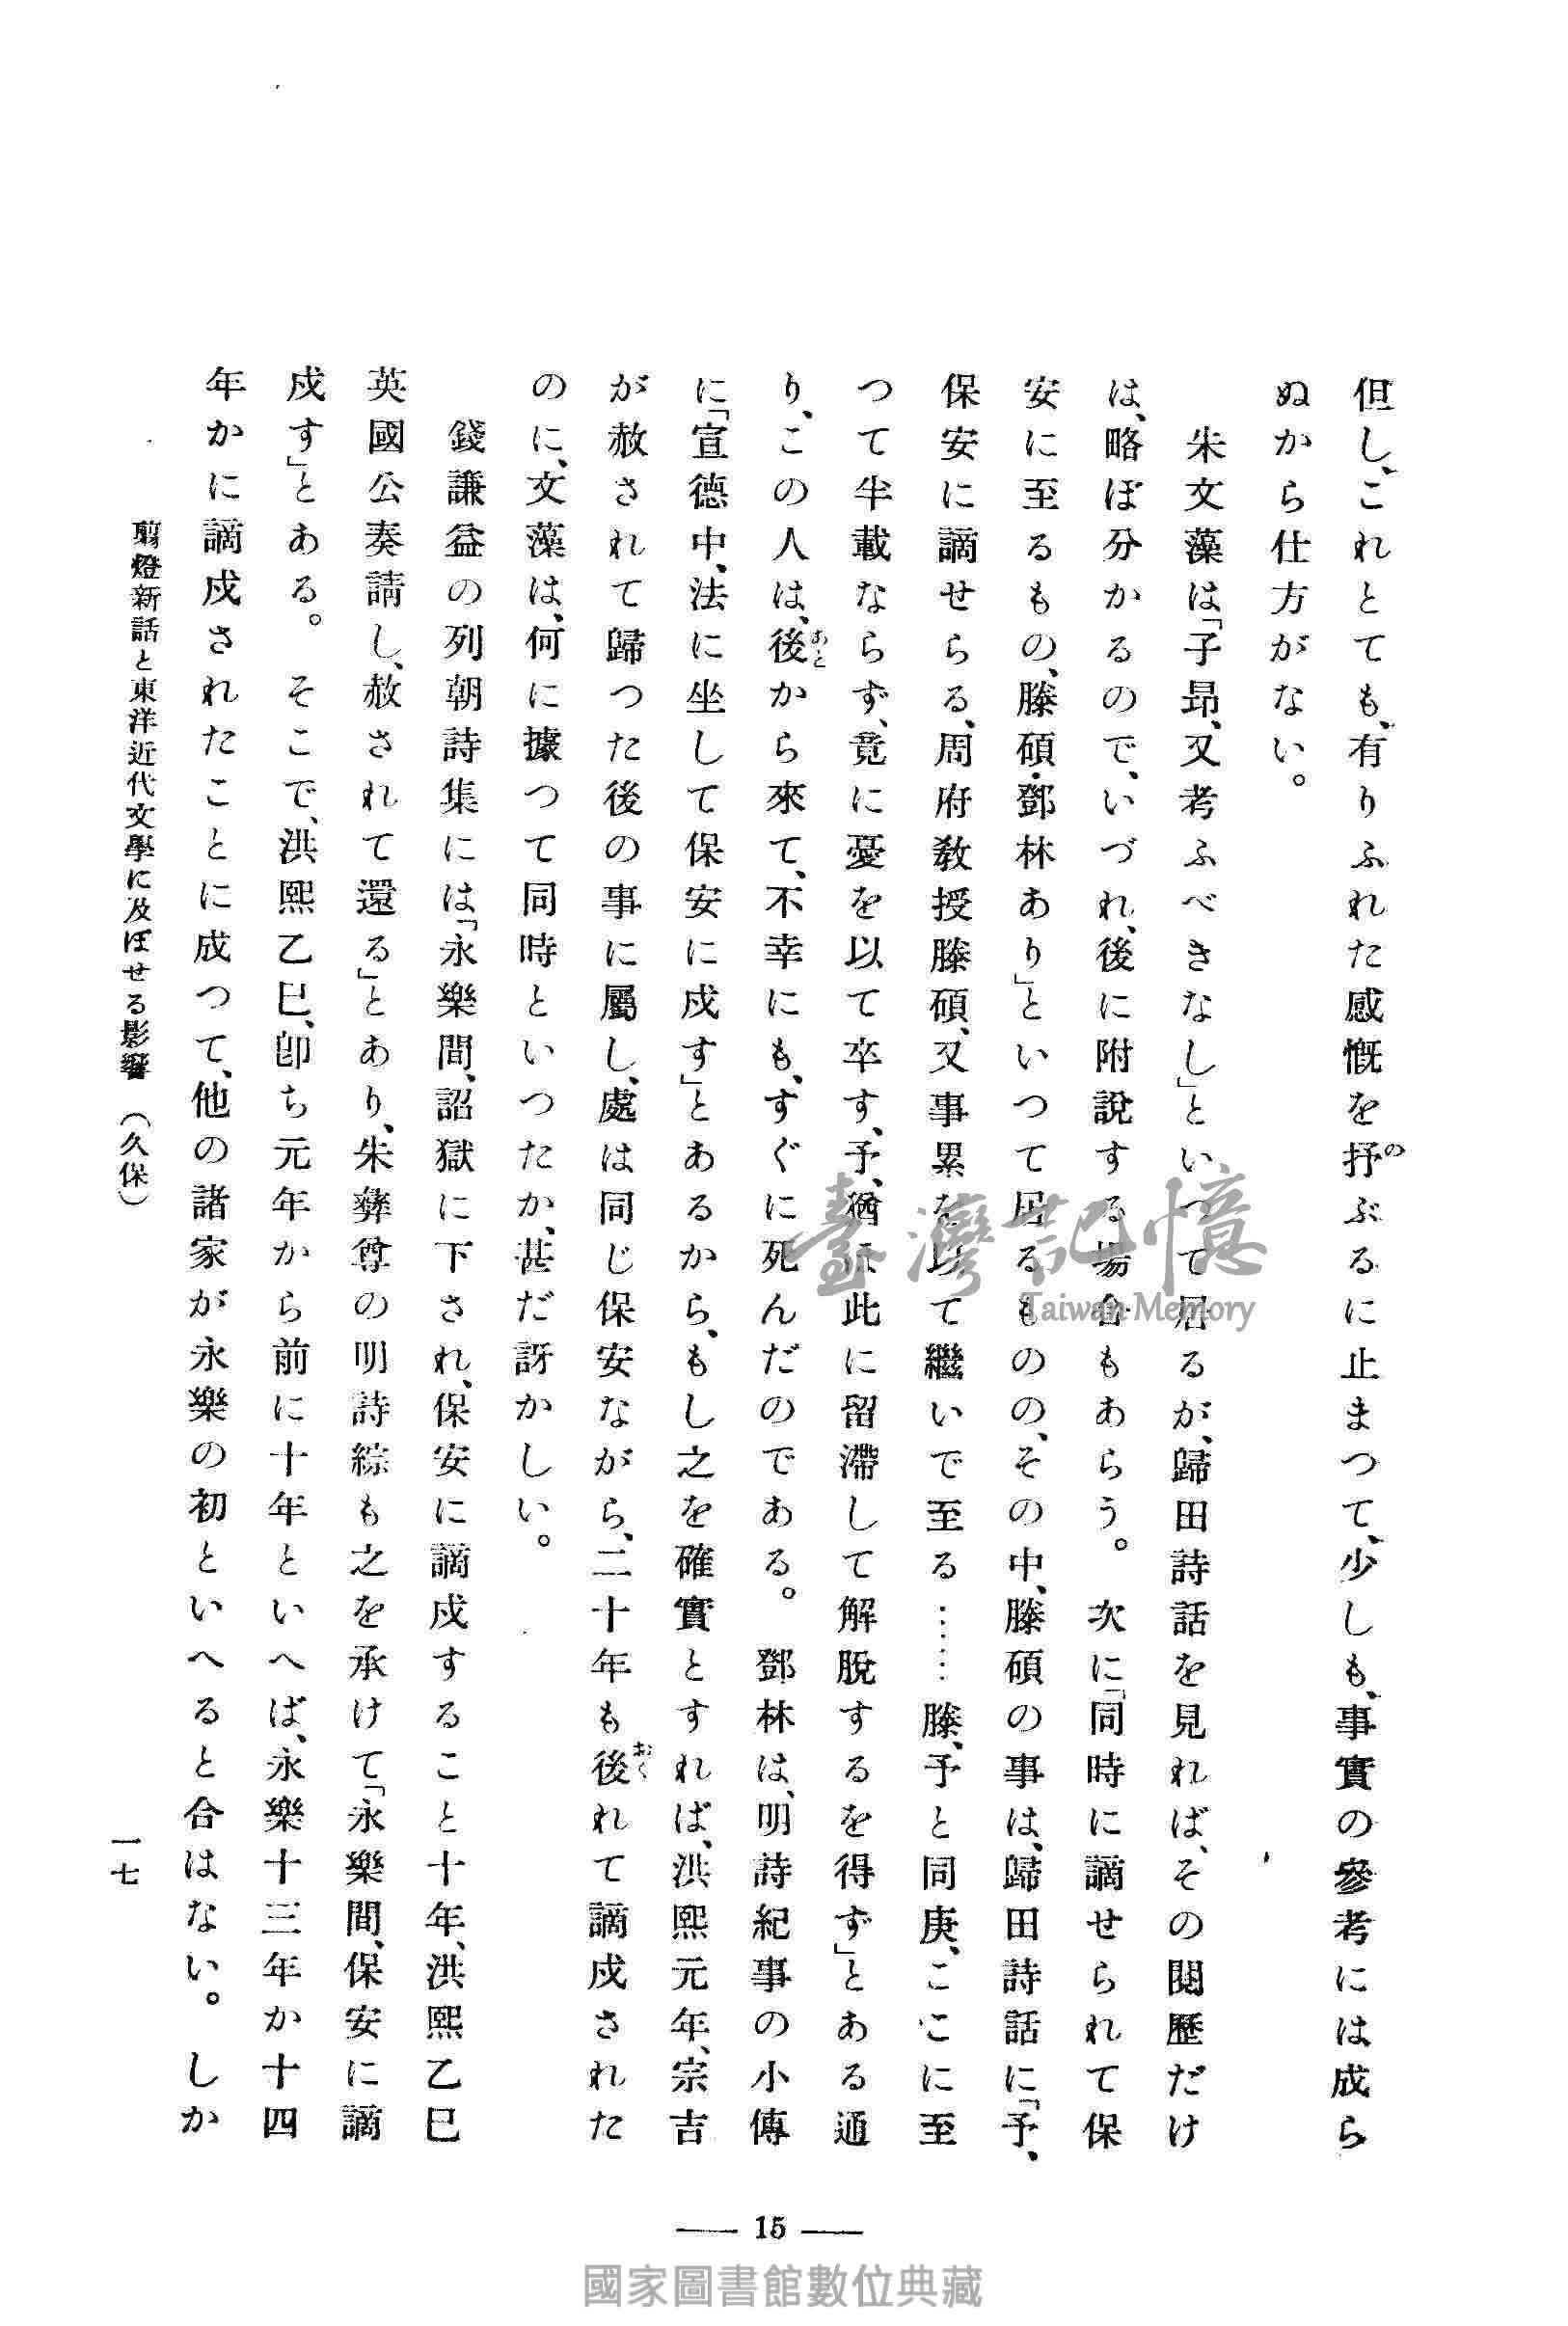 但し、これとても、有りふれた感慨を抒ぶるに止まつて、少しも、事實の參考には成ら
の
ぬから仕方がない。
朱文藻は「子昂、又考ふべきなし」といつて居るが、歸田詩話を見れば、その閱歷だけ
は、略ぼ分かるので、いづれ、後に附說する場合もあらう。 次に「同時に謫せられて保
安に至るもの、滕碩・鄧林あり」といつて居るものの、その中、滕碩の事は、歸田詩話に「予、
保安に謫せらる、周府敎授滕碩、又事累を以て繼いで至る……滕、予と同庚、ここに至
つて半載ならず、竟に憂を以て卒す、予、猶ほ此に留滯して解脫するを得ず」とある通
り、この人は、後から來て、不幸にも、すぐに死んだのである。 鄧林は、明詩紀事の小傳
あと
に「宣德中、法に坐して保安に戍す」とあるから、もし之を確實とすれば、洪熙元年、宗吉
が赦されて歸つた後の事に屬し、處は同じ保安ながら、二十年も後れて謫戍された
おく
のに、文藻は、何に據つて同時といつたか、甚だ訝かしい。
錢謙益の列朝詩集には「永樂間、詔獄に下され、保安に謫戍すること十年、洪熙乙巳
英國公奏請し、赦されて還る」とあり、朱彝尊の明詩綜も之を承けて「永樂間、保安に謫
戍す」とある。 そこで、洪熙乙巳、卽ち元年から前に十年といへば、永樂十三年か十四
年かに謫戍されたことに成つて、他の諸家が永樂の初といへると合はない。 しか
剪燈新話と東洋近代文學に及ぼせる影響 (久保)
一七
15
臺灣記憶
Taiwan Memory
國家圖書館數位典藏